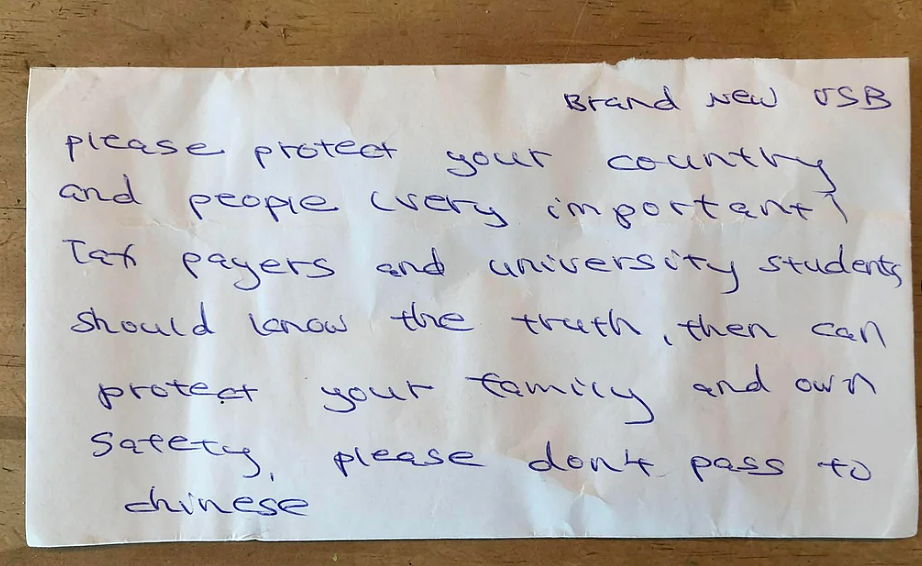 Brand New USB
please protect your country
and people (very important)
Tax payers and university students
should know the truth, then can
protect your family and own
Safety, please don't pass to
chinese